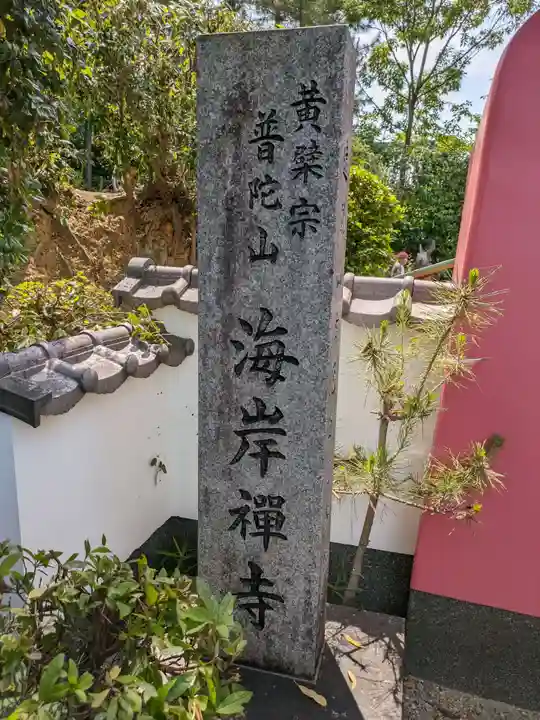 黄檗宗
普陀山
海岸禪寺